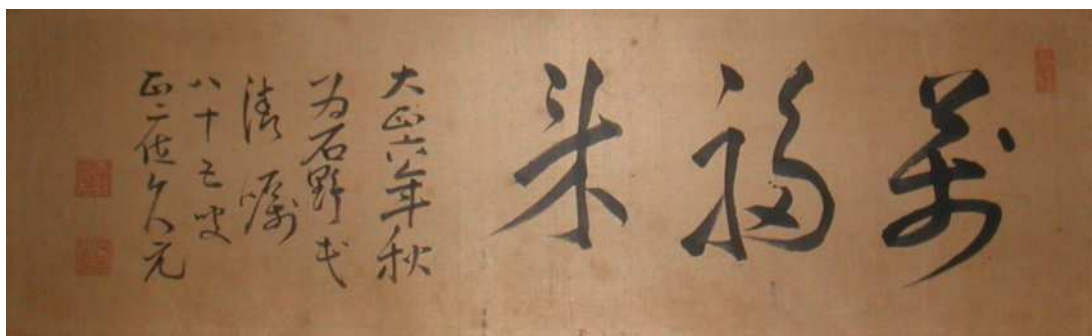 萬福来
大正六年秋
為石野氏
清嘱
八十五叟
正二位久元